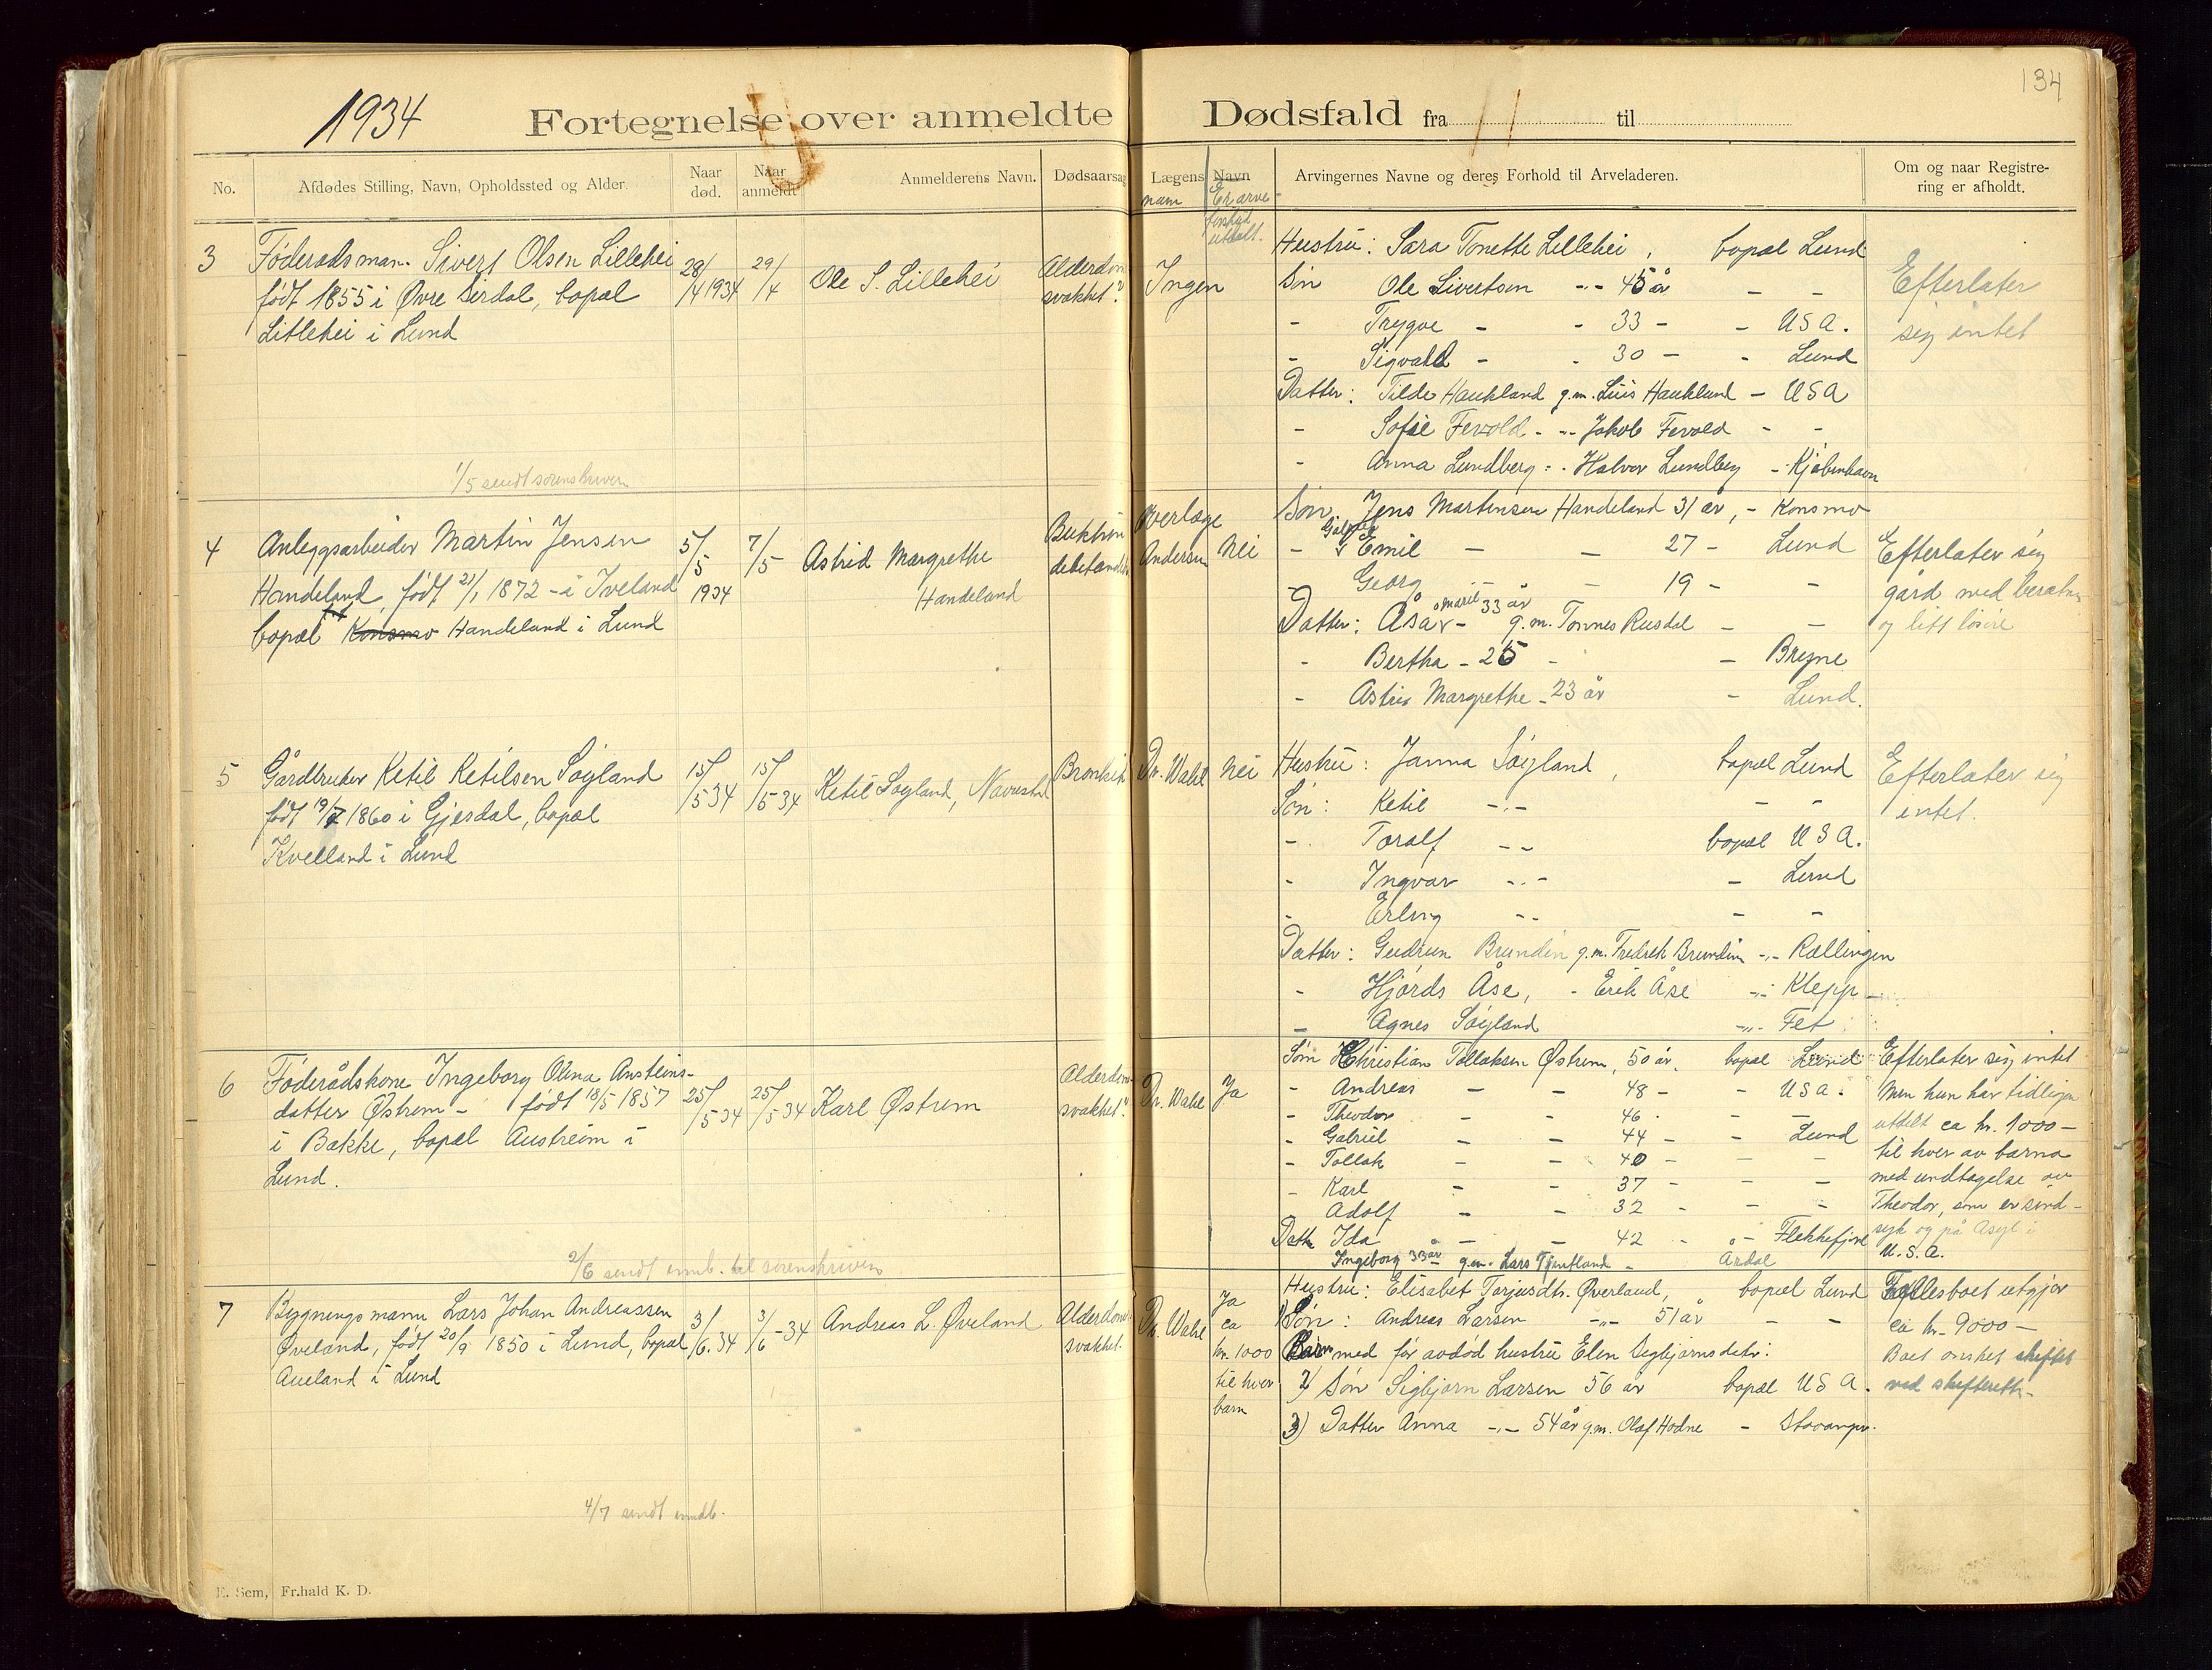 134
1934
Fortegnelse over anmeldte Dødsfald fra 11 til
No.
Afdødes Stilling, Navn, Opholdssted og Alder.
Naar død.
Naar anmeldt
Anmelderens Navn.
Dødsaarsag
Lægens Navn
navn
Er arve-
forskud
utdelt.
Arvingernes Navne og deres Forhold til Arveladeren.
Om og naar Registre-
ring er afholdt.
3
Føderadsman. Sivert Olsen Lillehei
født 1855 i Øvre Sirdal, bopæl
Litlehei i Lund
28/4 1934
29/4
Ole S. Lillehei
Alderdom
svakhet?
Ingen
Hustru: Sara Tonette Lillehei, bopæl Lund
Søn Ole Sivertsen -"- 45 år - -
- Trygve - - 33 - - USA.
- Sigvald - - 30 - - Lund
Datter: Tilde Haukland g.m. Luis Haukland - USA
- Sofie Fevold - -"- Jakob Fevold - -
- Anna Lundberg - - Halvor Lundberg - Kjøbenhavn
Efterlater
sig intet
1/5 sendt sorenskriveren
4
Anleggsarbeider Martin Jensen
Handeland, født 21/1 1872 - i Iveland
bopæl Konsmo Handeland i Lund
5/5
1934
7/5
Astrid Margrethe
Handeland
Overlæge
Andersen
Nei
Søn Jens Martinsen Handeland 31 år, - Konsmo
- Emil - - 27 - Lund
- Georg - - 19 - -
Datter: Åsa - 33 år g.m. Tønnes Rusdal - -
- Bertha - 25 - - Bryne
- Astrid Margrethe - 23 år - Lund.
Efterlater sig
gård med besætn.
og litt løsøre
5
Gårdbruker Ketil Ketilsen Søyland
født 19/7 1860 i Gjesdal, bopæl
Kvelland i Lund
15/5 34
15/5 34
Ketil Søyland, Navrestad
Bronkit
Dr. Wahl
Nei
Hustru: Janna Søyland, bopæl Lund
Søn: Ketil -"- - -
- Toralf - - bopæl USA.
- Ingvar -"- - Lund
- Erling - - - -
Datter: Gudrun Brundin g.m. Fredrik Brundin -"- Rællingen
- Hjørds Åse, - Erik Åse -"- Klepp
- Agnes Søyland -"- Fet
Efterlater sig
intet.
6
Føderådskone Ingeborg Olina Austeins-
datter Østrem - født 18/5 1857
i Bakke, bopæl Austreim i
Lund.
25/5 34
25/5 34
Karl Østrem
Alderdom
svakhet?
Dr. Wahl
Ja
Søn Christian Tollaksen Østrem, 50 år, bopæl Lund
- Andreas - - 48 - - USA.
- Theodor - - 46 -
- Gabriel - - 44 - - Lund
- Tollak - - 40 - - -
- Karl - - 37 - - -
- Adolf - - 32 - - -
Datter Ida - - 42 - - Flekkefjord
Ingeborg 33 år g.m. Lars Tjentland - Årdal
Efterlater sig intet
Men hun har tidligere
utdelt ca kr. 1000 -
til hver av barna
med undtagelse av
Theodor, som er sind-
syk og på Asyl i
U.S.A.
2/6 sendt innb. til sorenskriveren
7
Bygningsmann Lars Johan Andreassen
Øveland, født 20/9 1850 i Lund, bopæl
Aueland i Lund
3/6. 34
3/6 - 34
Andreas L. Øveland
Alderdoms
svakhet.
Dr. Wahl
Ja
ca
kr. 1000
til hver
barn
Hustru: Elisabet Tarjeisdtr. Øverland, bopæl Lund
1) Søn: Andreas Larsen -"- 51 år - -
Barn med før avdød hustru Elen Sigbjørnsdetr:
2) Søn Sigbjørn Larsen 56 år bopæl USA.
3) Datter Anna -"- 54 år g.m. Olaf Hodne - Stavanger.
Fellesboet utgjør
ca kr. 9000 -
Boet ønsket skiftet
ved skifterett.
4/7 sendt innb.
E. Sem, Fr.hald K. D.